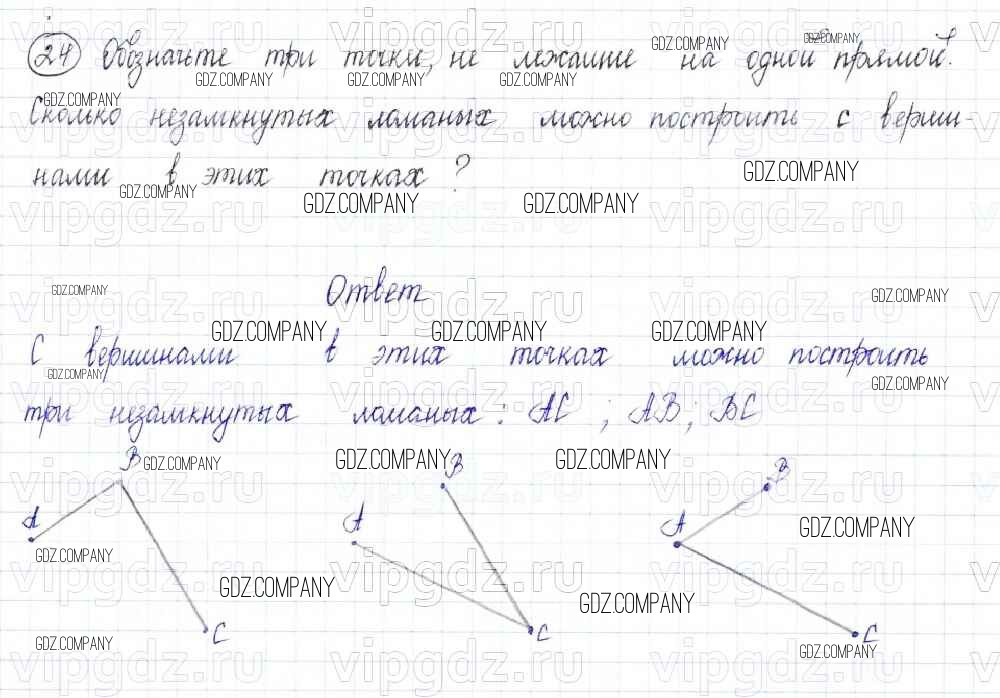 24 Обозначьте три точки, не лежащие на одной прямой.
Сколько незамкнутых ломаных можно построить с верши-
нами в этих точках?
Ответ
С вершинами в этих точках можно построить
три незамкнутых ломаных: АС; АВ; ВС
В В В
А А А
С С С
GDZ.COMPANY
vipgdz.ru